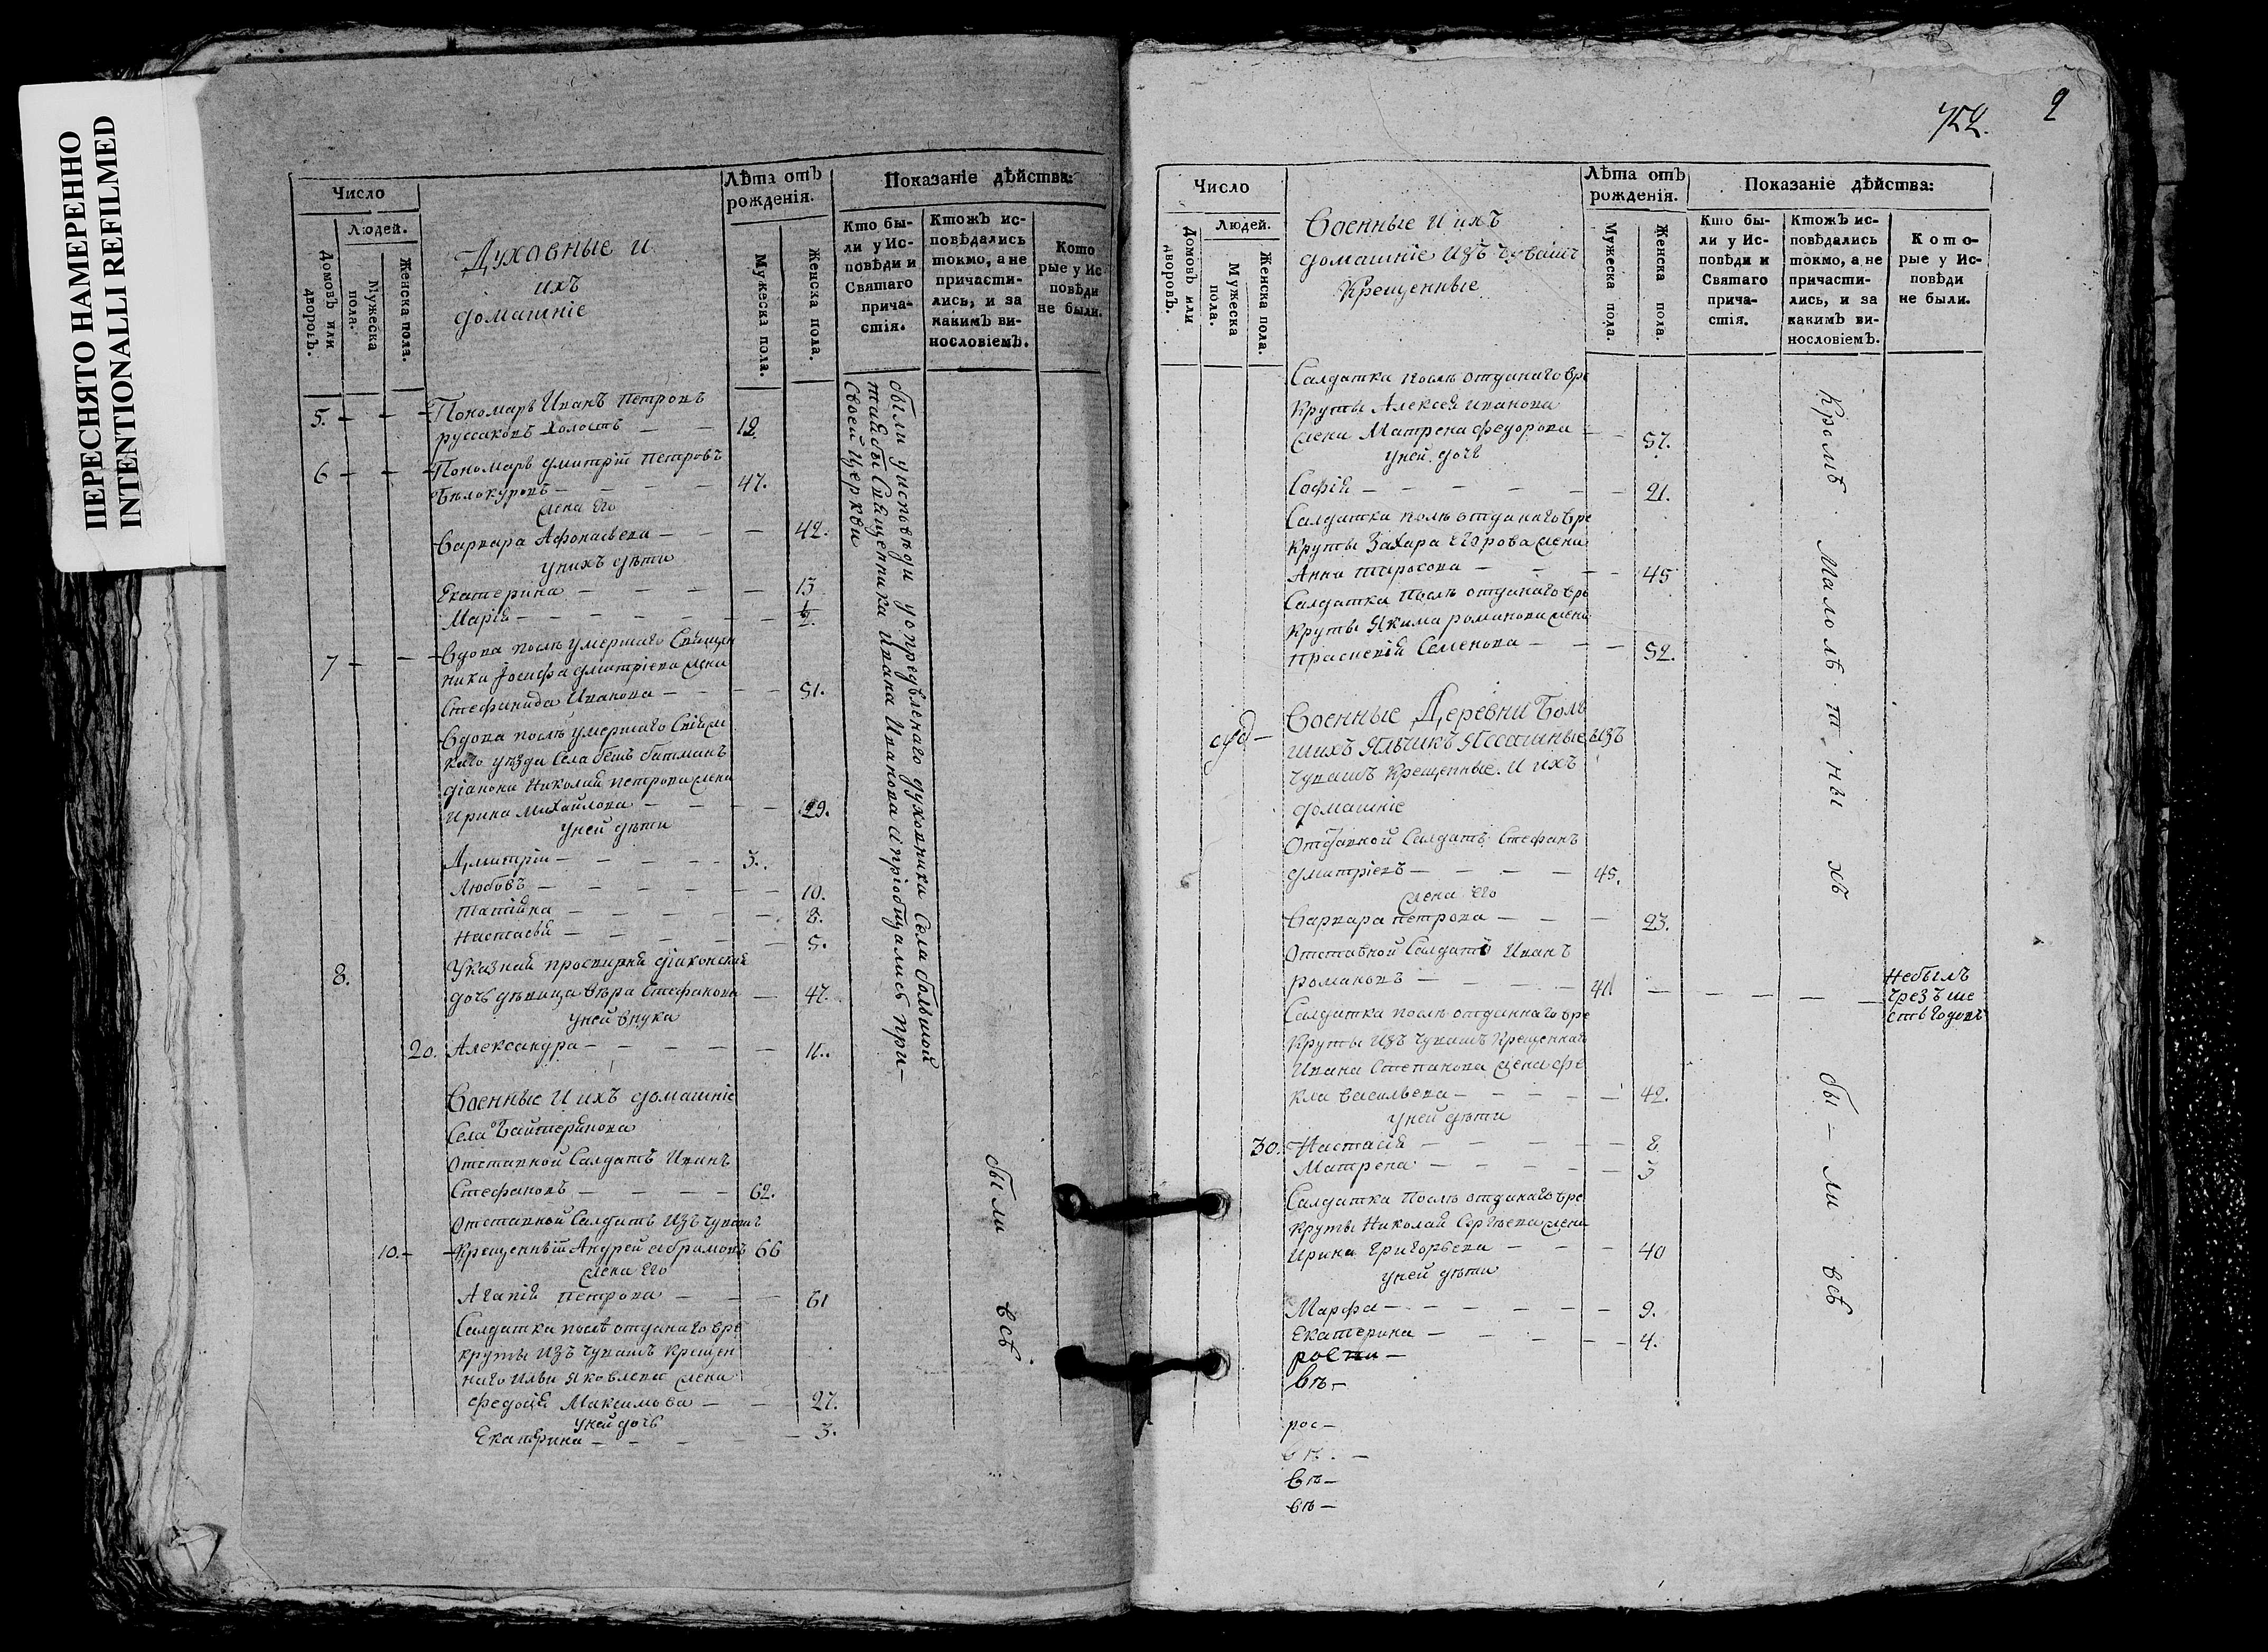 ПЕРЕСНЯТО НАМЕРЕННО
INTENTIONALLI REFILMED
Число
Людей.
Домовъ или дворовъ.
Мужеска пола.
Женска пола.
Духовные и
ихъ
домашніе
Лѣта отъ рожденія.
Мужеска пола.
Женска пола.
Показаніе дѣйства:
Кто бы-
ли у Ис-
повѣди и
Святаго
прича-
стія.
Ктожъ ис-
повѣдались
токмо, а не
причасти-
лись, и за
какимъ ви-
нословіемъ.
Кото
рые у Ис
повѣди
не были.
5. Пономарь Иванъ Петровъ
руссаковъ холостъ 19
6 Пономарь Дмитрій Петровъ
Бѣлокуровъ 47.
жена Его
Варвара Афонасьева 42.
у нихъ дѣти
Екатерина 13
Марія ½
7 Вдова послѣ умершаго Священ
ника Іосифа Дмитріева жена
Стефанида Иванова 51.
Вдова послѣ умершаго
каго уѣзда Села батманъ
діакона Николая Петрова жена
Ирина Михайлова 29.
у ней дѣти
Дмитріи 3.
Любовь 10.
Татіяна 8.
Настасья 5.
8. Указная просвирня діаконская
дочь дѣвица Вѣра Стефанова 47.
у ней внука
20. Александра 11.
Военные И ихъ домашніе
Села Байтерякова
Отставной Салдатъ Иванъ
Стефановъ 62.
Отставной Салдатъ Изъ чувашъ
10. Крещенный Андрей Абрамовъ 66
жена Его
Агапія Петрова 61
Салдатка послѣ отданаго вре
круты Изъ чувашъ Крещен
наго Ильи Яковлева жена
Федосія Максимова 27.
у ней дочь
Екатерина 3.
были у исповѣди у опредѣленаго духовника Села большой
таябы Священника Ивана Иванова и пріобщались при
своей Церкви
были всѣ
752. 2
Число
Людей.
Домовъ или дворовъ.
Мужеска пола.
Женска пола.
Военные И ихъ
домашніе Изъ чувашъ
Крещенные
Лѣта отъ рожденія.
Мужеска пола.
Женска пола.
Показаніе дѣйства:
Кто бы-
ли у Ис-
повѣди и
Святаго
прича-
стія.
Ктожъ ис-
повѣдались
токмо, а не
причасти-
лись, и за
какимъ ви-
нословіемъ.
Кото-
рые у Ис-
повѣди
не были.
Салдатка послѣ отданаго вре
круты Алексея Иванова
жена Матрена Федорова 57.
у ней дочь
Софія 21.
Салдатка послѣ отданаго вре
круты Захара Егорова жена
Анна Тарасова 45
Салдатка Послѣ отданаго вре
круты Якима романова жена
Прасковія Семенова 52.
Военные Деревни Боль
шихъ Яльчикъ Ясашные Изъ
чувашъ Крещенные И ихъ
домашніе
Отставной Салдатъ Стефанъ
Дмитріевъ 45.
жена Его
Варвара Петрова 23.
Отставной Салдатъ Иванъ
романовъ 41 Не былъ
чрезъ ше
сть годовъ
Салдатка послѣ отданнаго вре
круты Изъ чувашъ Крещеннаго
Ивана Степанова жена Фе
кла Васильева 42.
у ней дѣти
30. Настасія 8
Матрена 3
Салдатка Послѣ отданаго вре
круты Николая Сергѣева жена
Ирина Григорьева 40
у ней дѣти
Марфа 9.
Екатерина 4.
вѣ
рос
вѣ
вѣ
вѣ
Кромѣ малолѣтныхъ были всѣ